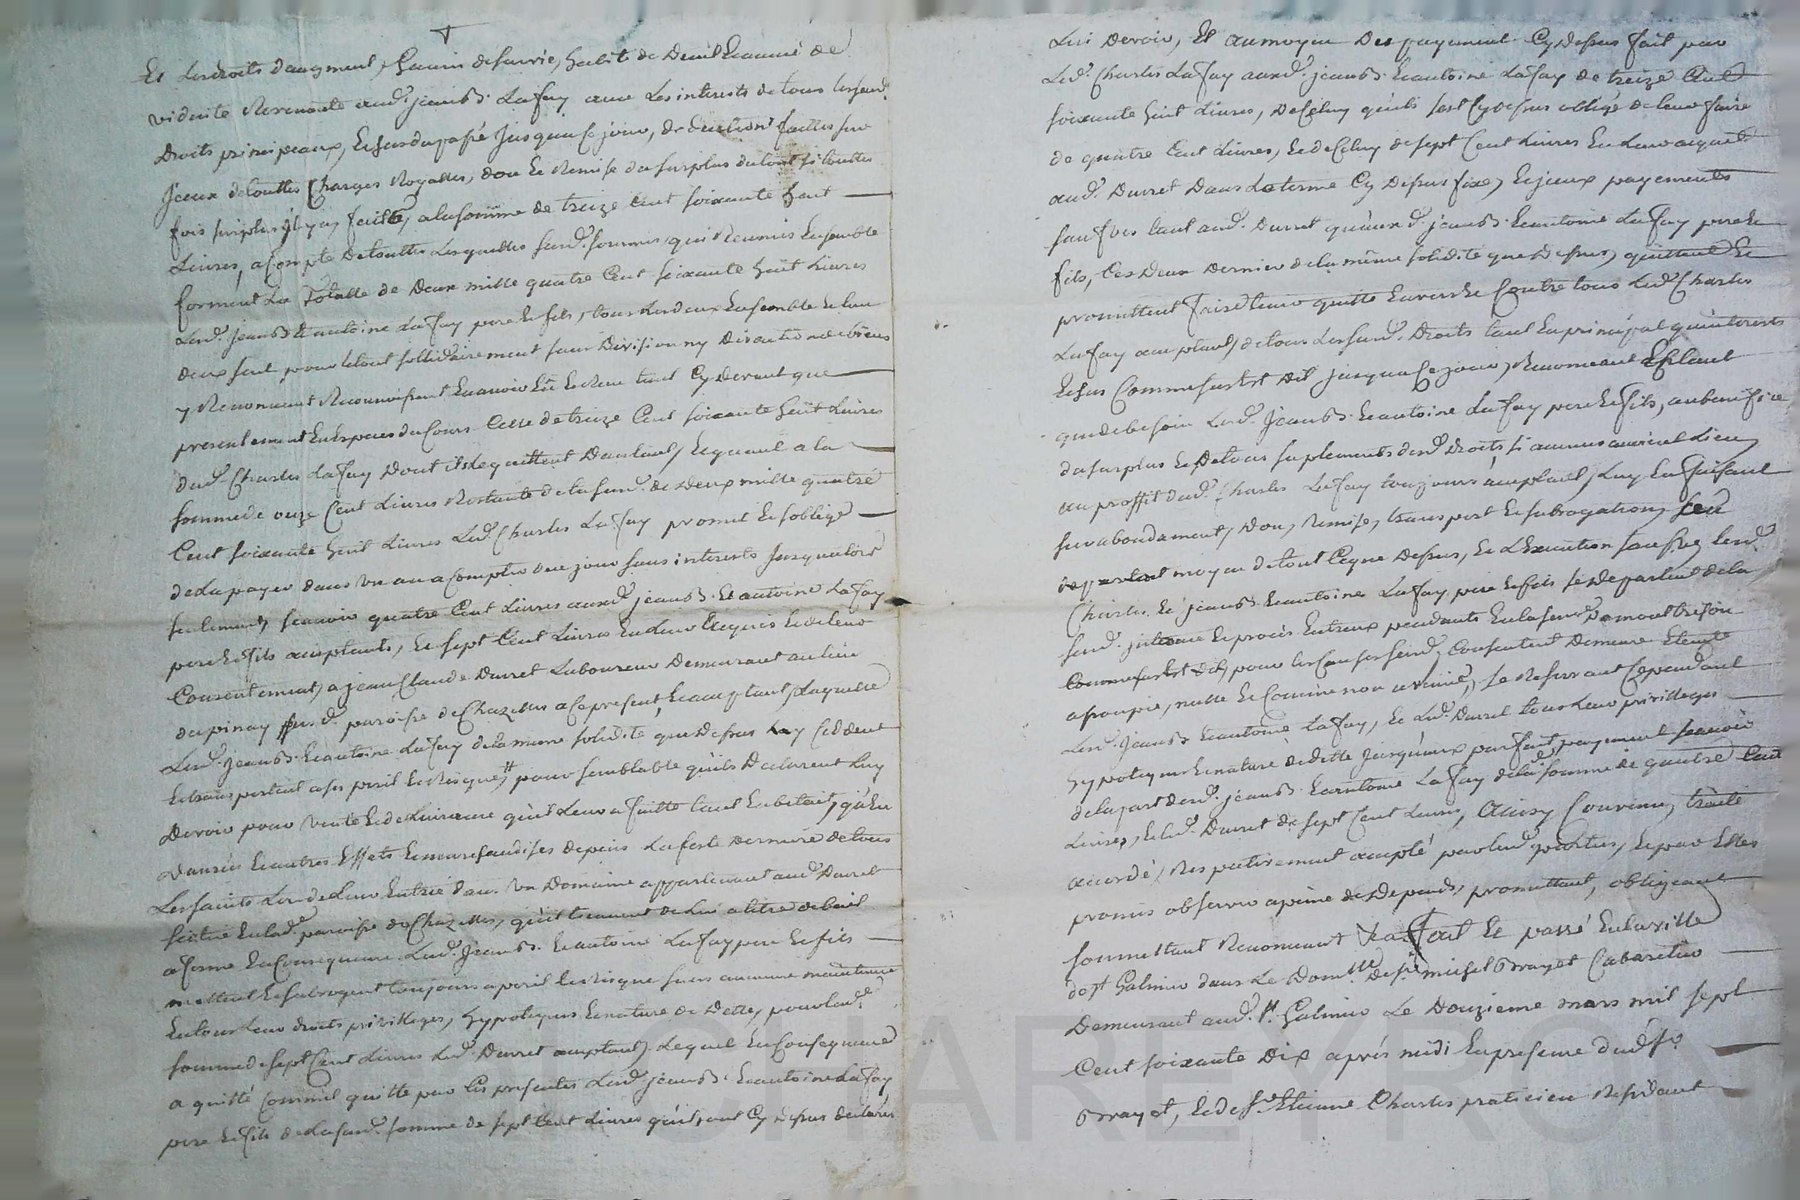 Et les droits d'augment, Gain de survie, habit de Deuil Et année de
viduité Revenante aud. jean Bte. Lafay avec Les interests de tous lesusd.
Droits principeaux, Et sus du passé jusqua ce jour, de duction faittes sur
Jceux de touttes Charges Royalles, don Et Remise du surplus du tout si touttes
fois surplus il y a, faitte, a la somme de treize Cent soixante huit
Livres, a Compte de touttes Lesquelles susd. sommes qui Reunies Ensemble
forment La Totalle de Deux mille quatre Cent soixante huit Livres
Lesd. jean Bte. Et antoine Lafay pere Et fils, tous Les deux Ensemble Et l'un
deux seul pour le tout sollidairement sans Division ny Discution de biens
y Renoncant Reconnoissent En avoir Eu Et Receu tant Cy Devant que
presentement En Especes du Cours Celle de treize Cent soixante huit Livres
dud. Charles Lafay Dont ils le quittent Dautant, Et quant a la
somme de onze Cent Livres Restante de la susd. de Deux mille quatre
Cent soixante huit Livres Led. Charles Lafay promet Et s'oblige
de La payer dans Un an a Compter de ce jour sans interests jusqualors
seulement, scavoir quatre Cent Livres auxd. jean Bte. Et antoine Lafay
pere Et fils acceptants, Et sept Cent Livres En Leur Acquit Et de leur
Consentement, a jean Claude Durret Laboureur Demeurant au lieu
du pinay susd. paroisse de Chazelles a Ce present, Et acceptant, Laquelle
Lesd. jean Bte. Et antoine Lafay de la meme solidité que Dessus Luy Ceddent
Et transportent a ses peril Et Risque, pour semblable qu'ils Declarent Luy
Devoir pour Vente Et delivrance qu'il Leur a faitte tant En bétail, qu'en
Danrés Et autres Effets Et marchandises depuis La feste Derniere de tous
Les saints Lors de Leur Entrée dans Un Domaine appartenant aud. Durret
scitué En lad. paroisse de Chazelles, qu'ils tiennent de Lui a titre de bail
a ferme En Consequence Lesd. Jean Bte. Et antoine Lafay pere Et fils
mettent Et subrogent toujours a peril Et Risque sans aucune maintenue
En tous Leur droits privilleges, hypoteques Et nature de Dette, pour lad.
somme de sept Cent Livres Led. Durret acceptant, Lequel En Consequence
a quitté Comme il quitte par Ces presentes Lesd. jean Bte. Et antoine Lafay
pere Et fils de La susd. somme de sept Cent Livres qu'ils ont Cy Dessus declarés
Lui Devoir, Et au moyen Des payement Cy Dessus fait par
Led. Charles Lafay auxd. jean Bte. Et antoine Lafay de treize Cent
soixante huit Livres, de Celuy qu'il s'est Cy dessus obligé de leur faire
de quatre Cent Livres, Et de Celuy de sept Cent Livres En Leur acquit
aud. Durret Dans Le terme Cy Dessus fixé, Et jceux payements
saufves tant aud. Durret qu'auxd. jean Bte. Et antoine Lafay pere Et
fils, Ces Deux Dernier de la même solidité que Dessus, quittent Et
promettent faire tenir quitte Envers Et Contre tous Led. Charles
Lafay acceptant, de tous Les susd. Droits tant En principal qu'interests
Et sus Comme sus Est Dit jusqua Ce jour, Renonceant Et plaut
que de besoin Lesd. Jean Bte. Et antoine Lafay pere Et fils, au benefice
du surplus Et De tous suplements desd. Droits si aucuns auroient Lieu
au proffit dud. Charles Lafay toujours acceptant, Luy En faisant
surabondament, Don, Remise, transport Et subrogation,
moyen de tout Ceque Dessus, Et L'Execution sauf, lesd.
Charles Et jean Bte. Et antoine Lafay pere Et fils se Departent de la
susd. instance Et procès Entreux pendants En la senechd. de montbrison
Comme sus Est dit, pour les Causes susd. Consentent Demeure Eteinte
assoupie, nulle Et Comme non avenüe, se Reservant Cependant
Lesd. Jean Bte. Et antoine Lafay, Et Led. Durret tous Leur privilleges
hypoteques Et nature de dette jusqu'aux parfait payement scavoir
de la part desd. jean Bte. Et antoine Lafay de la somme de quatre Cent
Livres, Et led. Durret de sept Cent Livres, Ainsy Convenu, traité
accordé, Respectivement accepté par lesd. parties, Et par Elles
promis observer a peine de Depends, promettant, obligeant
soumettant Renonceant &a fait Et passé En la ville
de st Galmier dans Le Domlle. De sr. michel Brayet Cabaretier
Demeurant aud. st. Galmier Le Douzieme mars mil sept
Cent soixante Dix aprés midi En presence dud. sr.
Brayet, Et de sr. Etienne Charles praticien Residant
CHARLEYRON